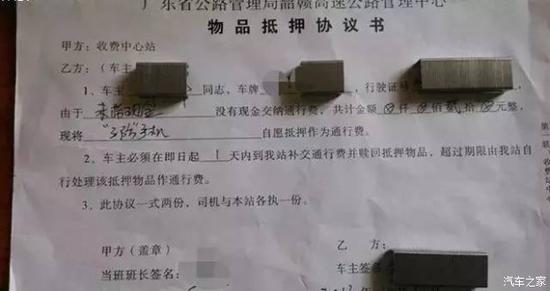 广东省公路管理局韶赣高速公路管理中心
物品抵押协议书
甲方：收费中心站
乙方：（车主
1、车主 同志，车牌 ，行驶证号
由于 未带现金 没有现金交纳通行费，共计金额 0 仟 0 佰 贰 拾 0 元整，
现将 “三张”手机 自愿抵押作为通行费。
2、车主必须在即日起 1 天内到我站补交通行费并赎回抵押物品，超过期限由我站自
行处理该抵押物品作通行费。
3、此协议一式两份，司机与本站各执一份。
甲方（盖章）
乙 方：
当班班长签名：
车主签名
汽车之家